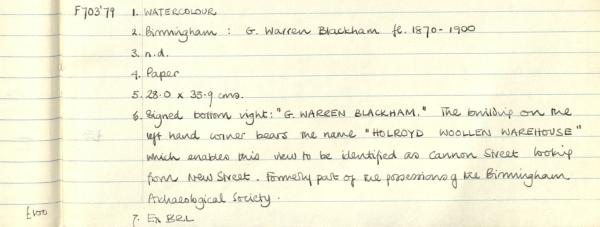 F703'79 1. WATERCOLOUR
2. Birmingham : G. Warren Blackham fl. 1870-1900
3. n.d.
4. Paper
5. 28.0 x 35.9 cms.
6. Signed bottom right: "G. WARREN BLACKHAM." The building on the
left hand corner bears the name "HOLROYD WOOLLEN WAREHOUSE"
which enables this view to be identified as Cannon Street looking
from New Street. Formerly part of the possessions of the Birmingham
Archaeological Society.
£100 7. Ex BRL